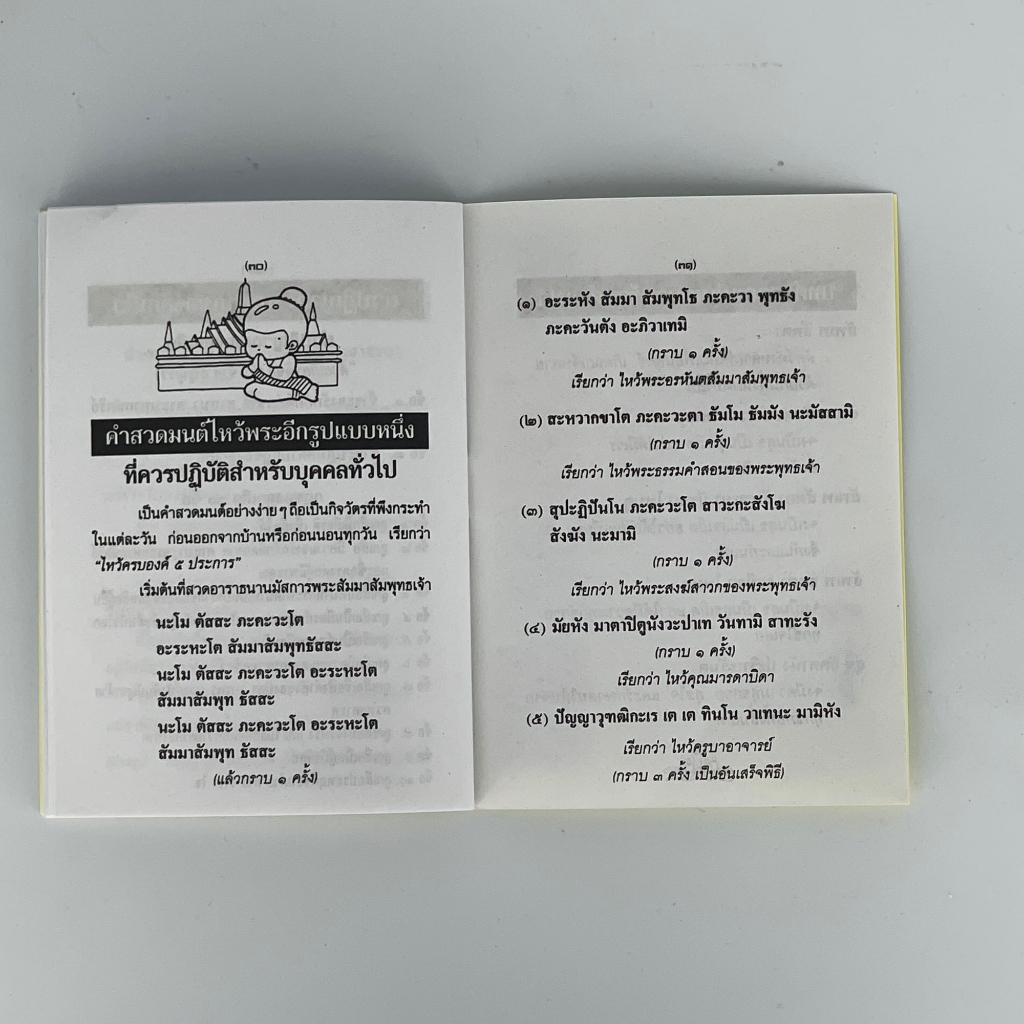 (๓๐)
คำสวดมนต์ไหว้พระอีกรูปแบบหนึ่ง
ที่ควรปฏิบัติสำหรับบุคคลทั่วไป
เป็นคำสวดมนต์อย่างง่าย ๆ ถือเป็นกิจวัตรที่พึงกระทำ
ในแต่ละวัน ก่อนออกจากบ้านหรือก่อนนอนทุกวัน เรียกว่า
“ไหว้ครบองค์ ๕ ประการ”
เริ่มต้นที่สวดอาราธนานมัสการพระสัมมาสัมพุทธเจ้า
นะโม ตัสสะ ภะคะวะโต
อะระหะโต สัมมาสัมพุทธัสสะ
นะโม ตัสสะ ภะคะวะโต อะระหะโต
สัมมาสัมพุท ธัสสะ
นะโม ตัสสะ ภะคะวะโต อะระหะโต
สัมมาสัมพุท ธัสสะ
(แล้วกราบ ๑ ครั้ง)
(๓๑)
(๑) อะระหัง สัมมา สัมพุทโธ ภะคะวา พุทธัง
ภะคะวันตัง อะภิวาเทมิ
(กราบ ๑ ครั้ง)
เรียกว่า ไหว้พระอรหันตสัมมาสัมพุทธเจ้า
(๒) สะหวากขาโต ภะคะวะตา ธัมโม ธัมมัง นะมัสสามิ
(กราบ ๑ ครั้ง)
เรียกว่า ไหว้พระธรรมคำสอนของพระพุทธเจ้า
(๓) สุปะฏิปันโน ภะคะวะโต สาวะกะสังโฆ
สังฆัง นะมามิ
(กราบ ๑ ครั้ง)
เรียกว่า ไหว้พระสงฆ์สาวกของพระพุทธเจ้า
(๔) มัยหัง มาตาปิตูนังวะปาเท วันทามิ สาทะรัง
(กราบ ๑ ครั้ง)
เรียกว่า ไหว้คุณมารดาบิดา
(๕) ปัญญาวุฑฒิกะเร เต เต ทินโน วาเทนะ มามิหัง
เรียกว่า ไหว้ครูบาอาจารย์
(กราบ ๓ ครั้ง เป็นอันเสร็จพิธี)